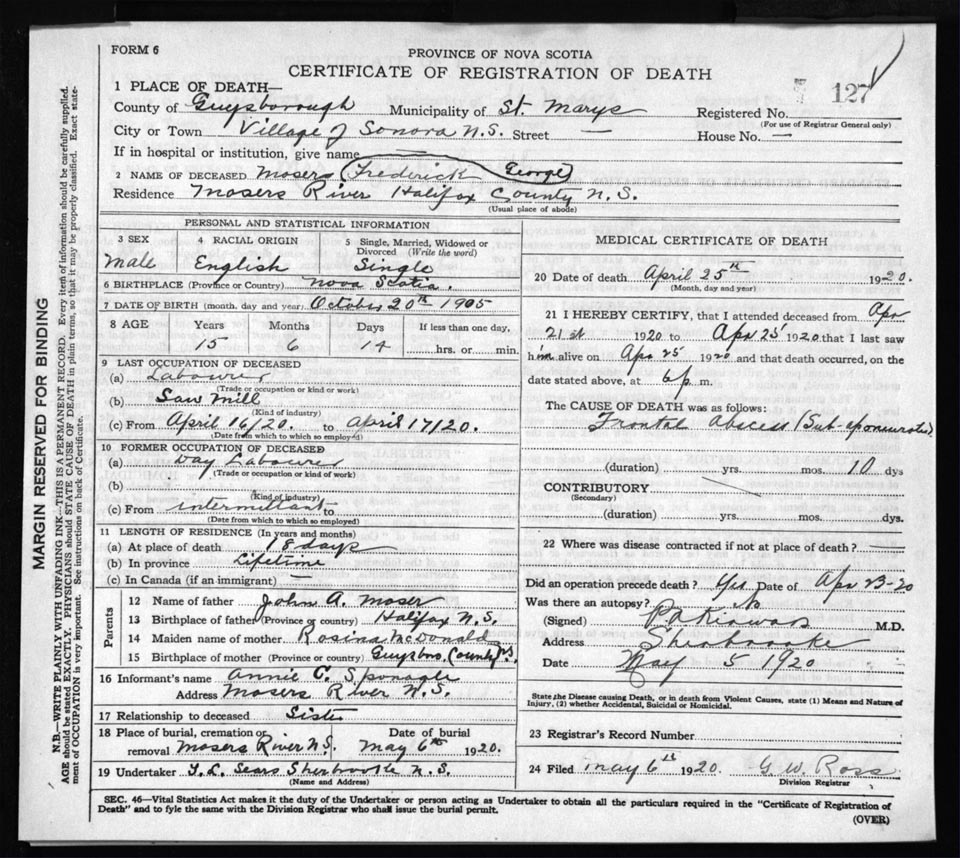 FORM 6
PROVINCE OF NOVA SCOTIA
CERTIFICATE OF REGISTRATION OF DEATH
127
1 PLACE OF DEATH—
County of Guysborough Municipality of St. Marys Registered No.
(For use of Registrar General only)
City or Town Village of Sonora N.S. Street — House No. —
If in hospital or institution, give name
2 NAME OF DECEASED Mosers (Frederick George)
Residence Mosers River Halifax County N.S.
(Usual place of abode)
PERSONAL AND STATISTICAL INFORMATION
3 SEX Male
4 RACIAL ORIGIN English
5 Single, Married, Widowed or Divorced (Write the word) Single
6 BIRTHPLACE (Province or Country) Nova Scotia.
7 DATE OF BIRTH (month, day and year) October 20th 1905
8 AGE Years Months Days If less than one day,
15 6 14 hrs. or min.
9 LAST OCCUPATION OF DECEASED
(a) Labourer
(Trade or occupation or kind or work)
(b) Saw Mill
(Kind of industry)
(c) From April 16/20. to April 17/20.
(Date from which to which so employed)
10 FORMER OCCUPATION OF DECEASED
(a) Day Labourer
(Trade or occupation or kind of work)
(b)
(Kind of industry)
(c) From intermittant to
(Date from which to which so employed)
11 LENGTH OF RESIDENCE (In years and months)
(a) At place of death 18 days
(b) In province Lifetime
(c) In Canada (if an immigrant) —
Parents
12 Name of father John A. Moser
13 Birthplace of father (Province or country) Halifax N.S.
14 Maiden name of mother Rosina McDonald
15 Birthplace of mother (Province or country) Guysboro County N.S.
16 Informant's name Annie C. Sponagle
Address Mosers River N.S.
17 Relationship to deceased Sister
18 Place of burial, cremation or Date of burial
removal Mosers River N.S. May 6th 1920.
19 Undertaker Sears Sherbrooke N.S.
(Name and Address)
MEDICAL CERTIFICATE OF DEATH
20 Date of death April 25th 1920.
(Month, day and year)
21 I HEREBY CERTIFY, that I attended deceased from Apr
21st 1920 to Apr 25 1920 that I last saw
him alive on Apr 25 1920 and that death occurred, on the
date stated above, at 6 p. m.
The CAUSE OF DEATH was as follows:
Frontal abscess (Sub-aponeurotic)
(duration) yrs. mos. 10 dys
CONTRIBUTORY
(Secondary)
(duration) yrs. mos. dys.
22 Where was disease contracted if not at place of death? —
Did an operation precede death? Yes Date of Apr 23-20
Was there an autopsy? No
(Signed) M.D.
Address Sherbrooke
Date May 5 1920
State the Disease causing Death, or in death from Violent Causes, state (1) Means and Nature of
Injury, (2) whether Accidental, Suicidal or Homicidal.
23 Registrar's Record Number
24 Filed May 6th 1920. G. W. Ross
Division Registrar
SEC. 46—Vital Statistics Act makes it the duty of the Undertaker or person acting as Undertaker to obtain all the particulars required in the "Certificate of Registration of
Death" and to fyle the same with the Division Registrar who shall issue the burial permit.
(OVER)
MARGIN RESERVED FOR BINDING
N.B.—WRITE PLAINLY WITH UNFADING INK—THIS IS A PERMANENT RECORD. Every item of information should be carefully supplied.
AGE should be stated EXACTLY. PHYSICIANS should STATE CAUSE OF DEATH in plain terms, so that it may be properly classified. Exact state-
ment of OCCUPATION is very important. See instructions on back of Certificate.